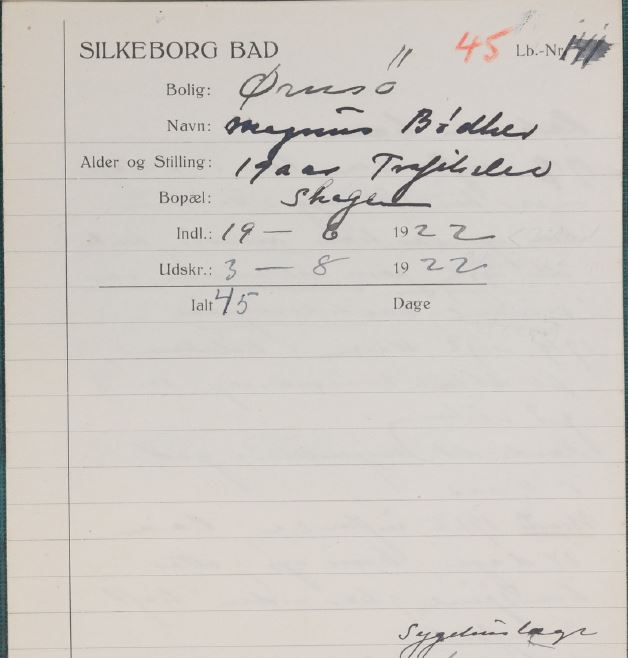 SILKEBORG BAD 45 Lb.-Nr. 141
Bolig: Ørnsö
Navn: Magnus Bødker
Alder og Stilling: 19 aar
Bopæl: Skagen
Indl.: 19 — 6 1922
Udskr.: 3 — 8 1922
Ialt 45 Dage
Sygehuslæge